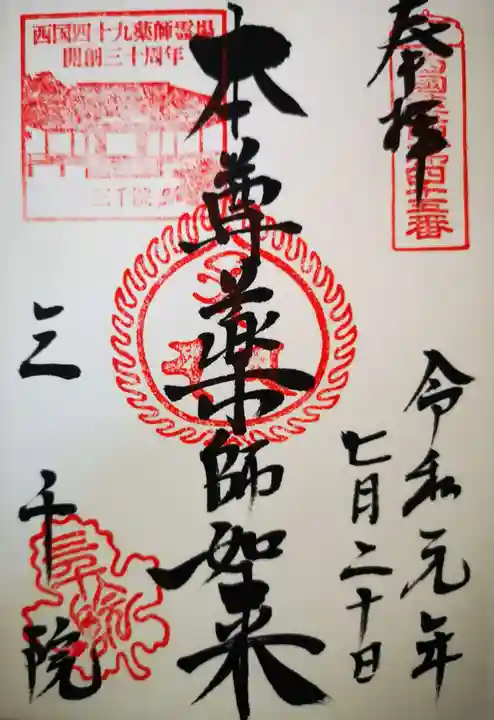 奉拝
西国薬師第四十五番
令和元年
七月二十日
本尊薬師如来
西国四十九薬師霊場
開創三十周年
三千院
三千院
三千院